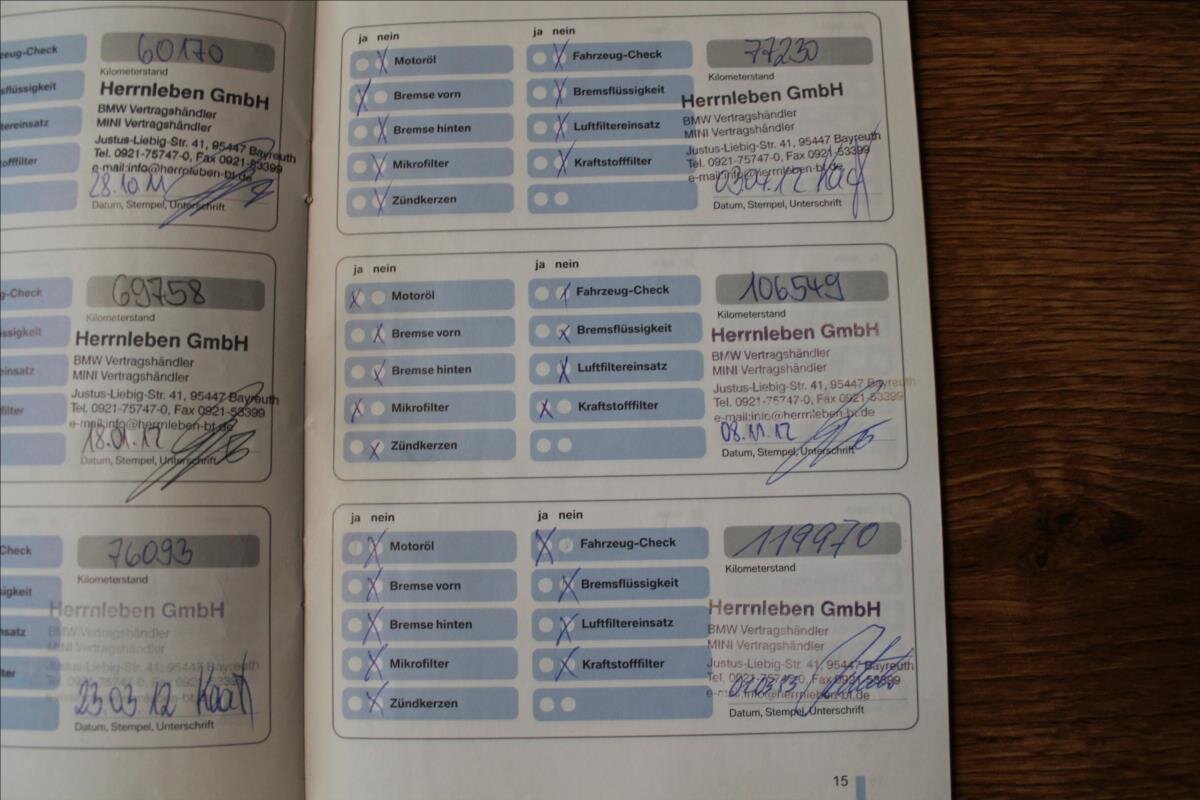 zeug-Check
60170
Kilometerstand
sflüssigkeit
Herrnleben GmbH
BMW Vertragshändler
tereinsatz
MINI Vertragshändler
Justus-Liebig-Str. 41, 95447 Bayreuth
offfilter
Tel. 0921-75747-0, Fax 0921-53399
e-mail:info@herrnleben-bt.de
28.10.11
Datum, Stempel, Unterschrift
g-Check
69758
Kilometerstand
ssigkeit
Herrnleben GmbH
BMW Vertragshändler
einsatz
MINI Vertragshändler
Justus-Liebig-Str. 41, 95447 Bayreuth
filter
Tel. 0921-75747-0, Fax 0921-53399
e-mail:info@herrnleben-bt.de
18.01.12
Datum, Stempel, Unterschrift
Check
76093
Kilometerstand
igkeit
Herrnleben GmbH
BMW Vertragshändler
nsatz
MINI Vertragshändler
Justus-Liebig-Str. 41, 95447 Bayreuth
ter
23.03.12
Datum, Stempel, Unterschrift
ja nein
ja nein
Motoröl
Fahrzeug-Check
77230
Kilometerstand
Bremse vorn
Bremsflüssigkeit
Herrnleben GmbH
BMW Vertragshändler
Bremse hinten
Luftfiltereinsatz
MINI Vertragshändler
Justus-Liebig-Str. 41, 95447 Bayreuth
Mikrofilter
Kraftstofffilter
Tel. 0921-75747-0, Fax 0921-53399
e-mail:info@herrnleben-bt.de
03.04.12
Zündkerzen
Datum, Stempel, Unterschrift
ja nein
ja nein
Motoröl
Fahrzeug-Check
106549
Kilometerstand
Bremse vorn
Bremsflüssigkeit
Herrnleben GmbH
BMW Vertragshändler
Bremse hinten
Luftfiltereinsatz
MINI Vertragshändler
Justus-Liebig-Str. 41, 95447 Bayreuth
Mikrofilter
Kraftstofffilter
Tel. 0921-75747-0, Fax 0921-53399
e-mail:info@herrnleben-bt.de
08.11.12
Zündkerzen
Datum, Stempel, Unterschrift
ja nein
ja nein
Motoröl
Fahrzeug-Check
119970
Kilometerstand
Bremse vorn
Bremsflüssigkeit
Herrnleben GmbH
BMW Vertragshändler
Bremse hinten
Luftfiltereinsatz
MINI Vertragshändler
Justus-Liebig-Str. 41, 95447 Bayreuth
Mikrofilter
Kraftstofffilter
Tel. 0921-75747-0, Fax 0921-53399
e-mail:info@herrnleben-bt.de
Zündkerzen
Datum, Stempel, Unterschrift
15